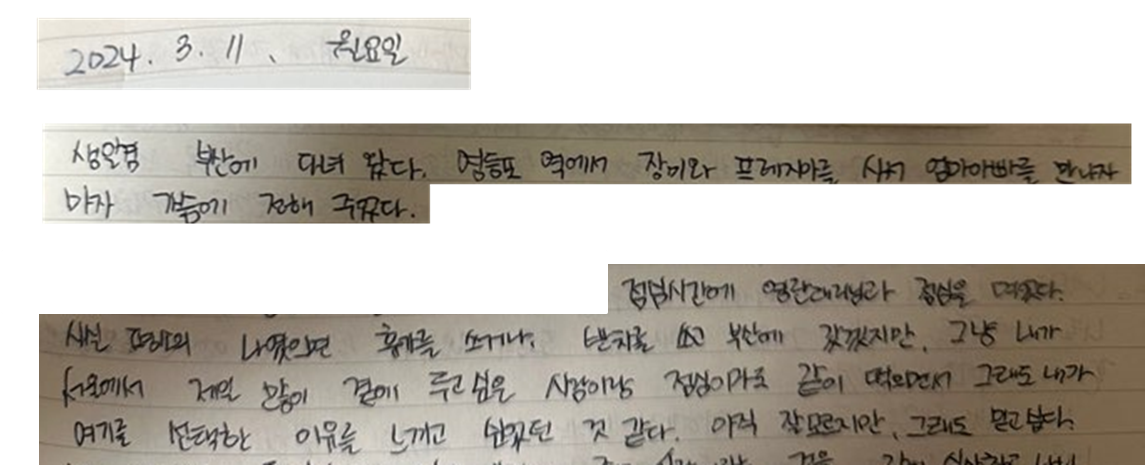 2024. 3. 11. 월요일
생일겸 부산에 다녀 왔다. 영등포 역에서 장미와 프레지아를 사서 엄마아빠를 만나자
마자 가슴에 전해 주었다.
점심시간에 영란대리님과 점심을 먹었다.
사실 또래의 나였으면 휴가를 쓰거나, 반차를 쓰고 부산에 갔겠지만, 그냥 내가
서울에서 제일 많이 곁에 두고 싶은 사람이랑 점심이라도 같이 먹으면서 그래도 내가
여기를 선택한 이유를 느끼고 싶었던 것 같다. 아직 잘모르지만, 그래도 믿고싶다.